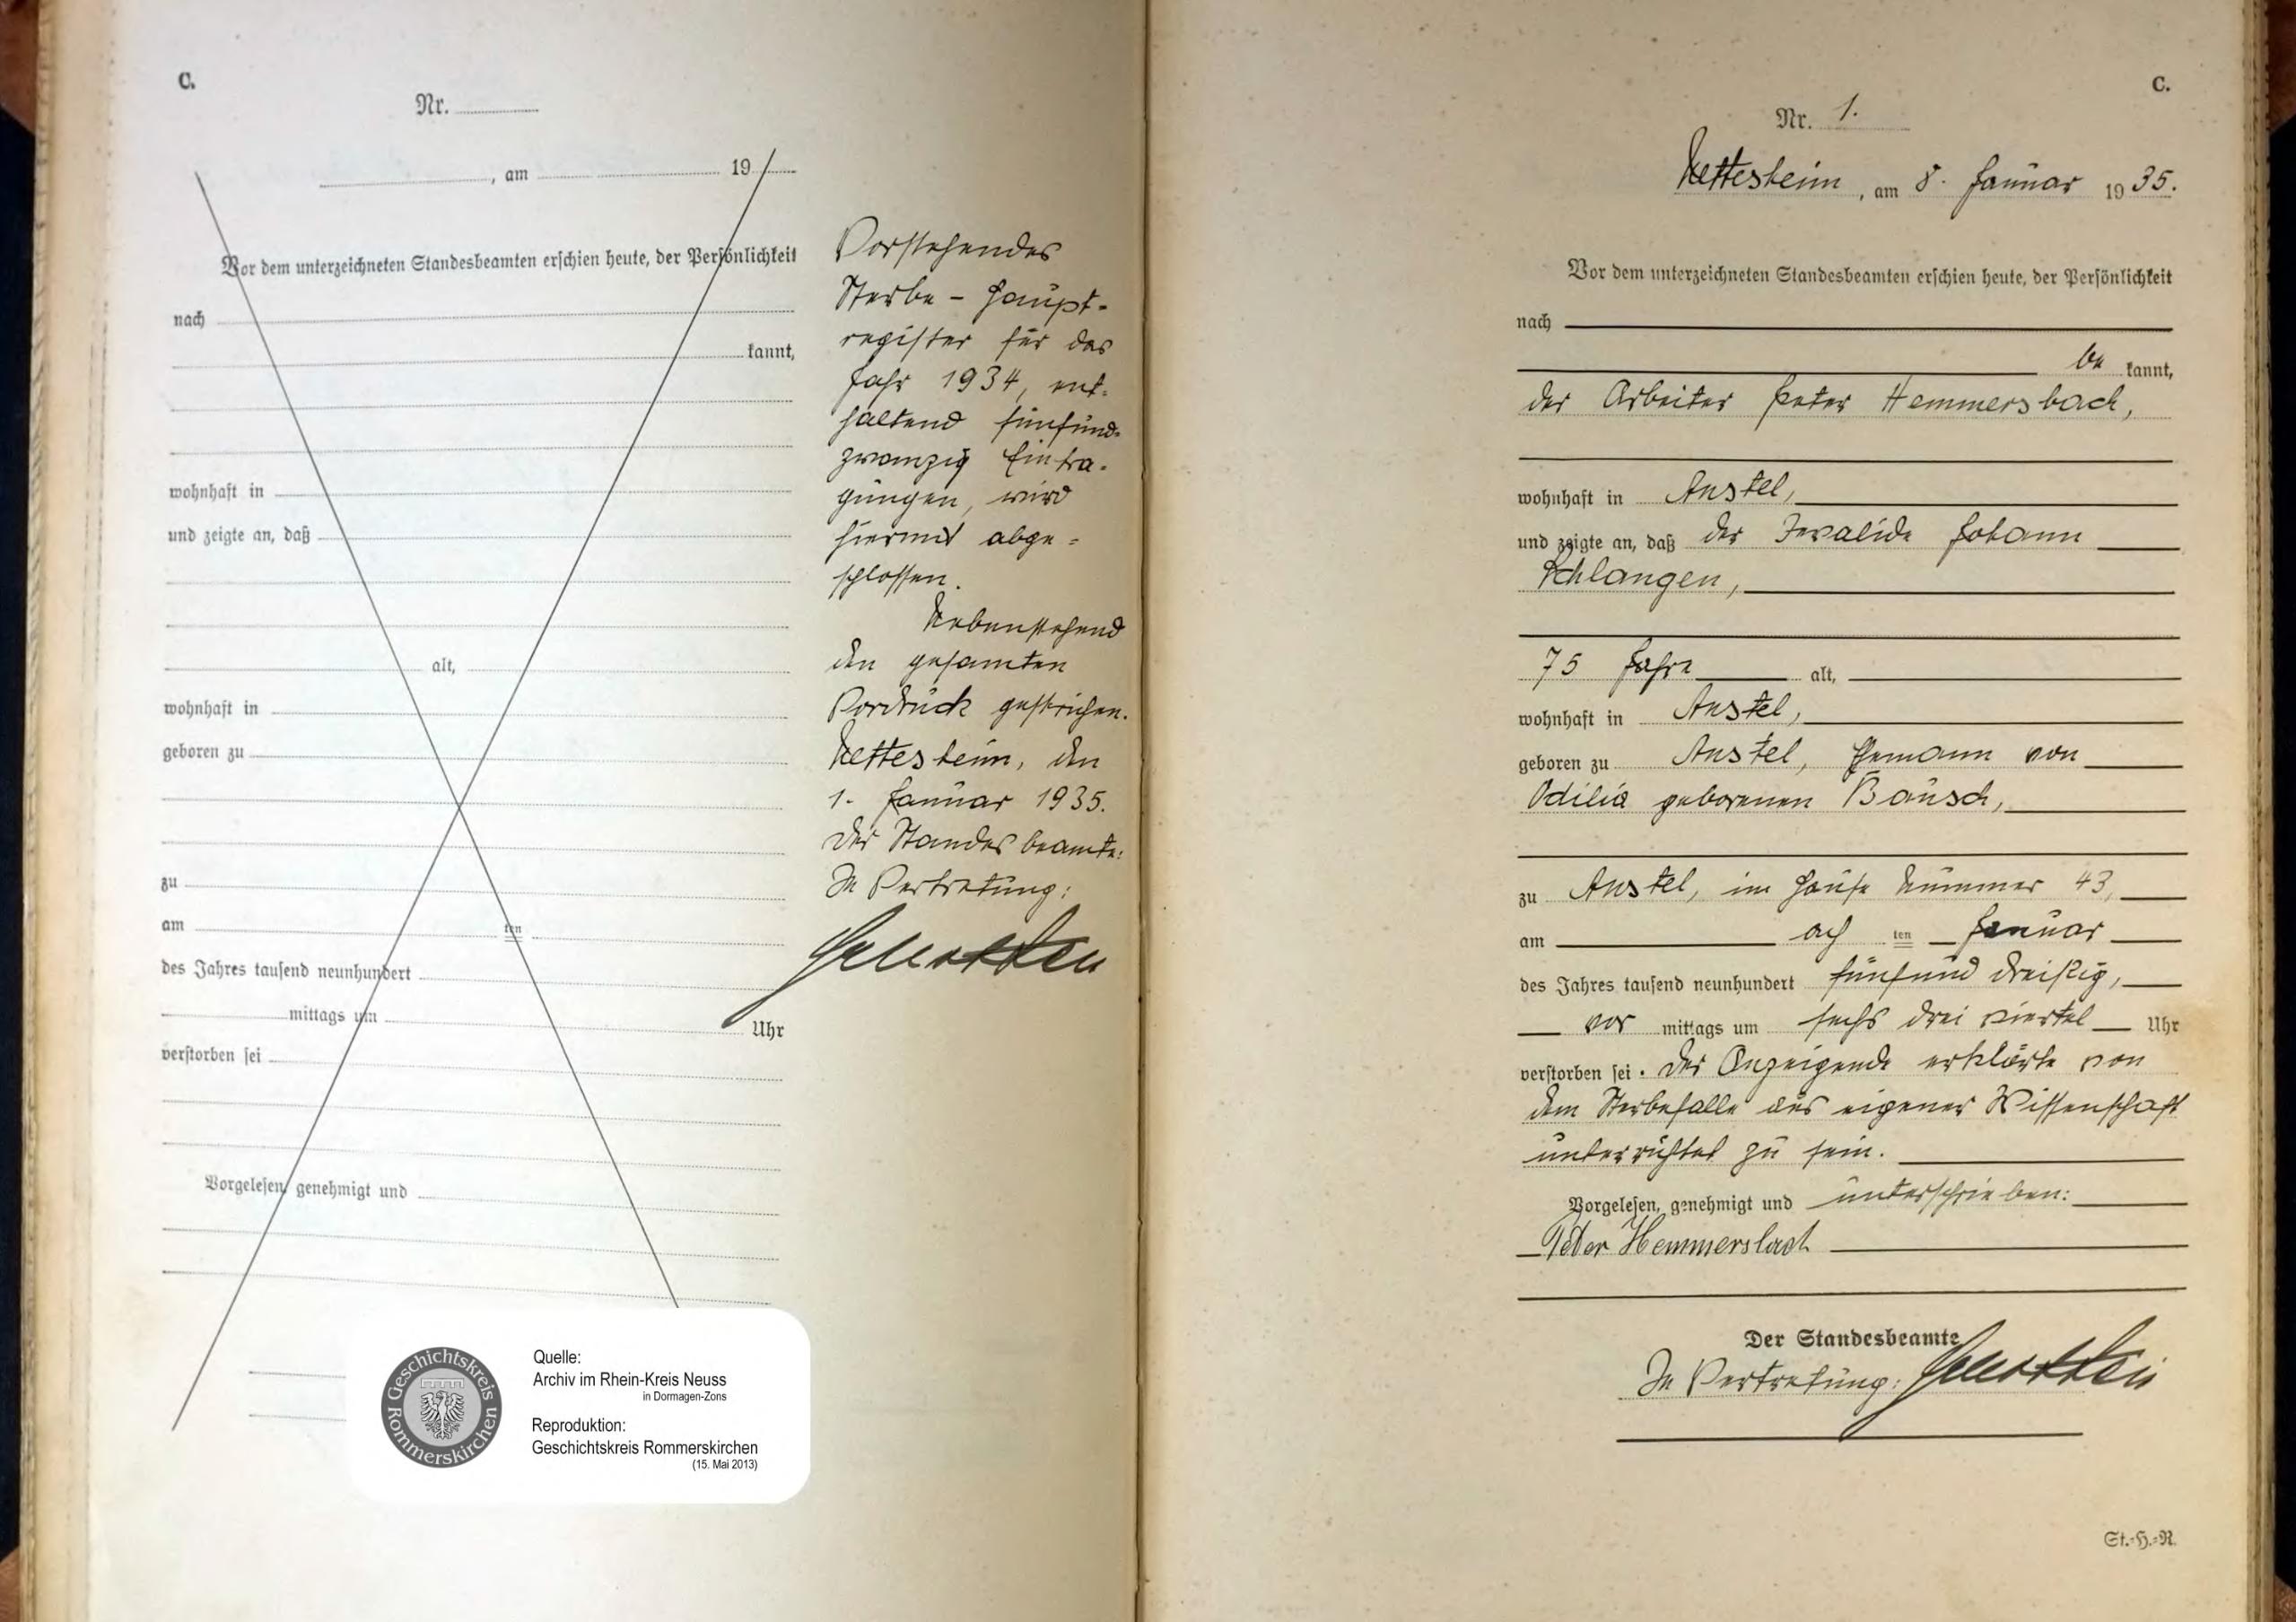 C.
Nr.
, am 19
Vor dem unterzeichneten Standesbeamten erschien heute, der Persönlichkeit
nach
kannt,
wohnhaft in
und zeigte an, daß
alt,
wohnhaft in
geboren zu
zu
am ten
des Jahres tausend neunhundert
mittags um
Uhr
verstorben sei
Vorgelesen, genehmigt und
Vorstehendes
Sterbe - Haupt-
register für das
Jahr 1934, ent-
haltend fünfund-
zwanzig Eintra-
gungen, wird
hiermit abge-
schlossen.
Nebenstehend
den gesamten
Vordruck gestrichen.
Nettesheim, den
1. Januar 1935.
Der Standesbeamte:
In Vertretung:
Geschichtskreis Rommerskirchen
Quelle:
Archiv im Rhein-Kreis Neuss
in Dormagen-Zons
Reproduktion:
Geschichtskreis Rommerskirchen
(15. Mai 2013)
C.
Nr. 1.
Nettesheim, am 8. Januar 1935.
Vor dem unterzeichneten Standesbeamten erschien heute, der Persönlichkeit
nach
be kannt,
der Arbeiter Peter Hemmersbach,
wohnhaft in Anstel,
und zeigte an, daß der Invalide Johann
Schlangen,
75 Jahre alt,
wohnhaft in Anstel,
geboren zu Anstel, Ehemann von
Odilia geborenen Bausch,
zu Anstel, im Hause Nummer 43,
am ach ten Januar
des Jahres tausend neunhundert fünfund dreißig,
vor mittags um sechs drei viertel Uhr
verstorben sei. Der Anzeigende erklärte von
dem Sterbefalle aus eigener Wissenschaft
unterrichtet zu sein.
Vorgelesen, genehmigt und unterschrieben:
Peter Hemmersbach
Der Standesbeamte
In Vertretung:
St.-H.-R.